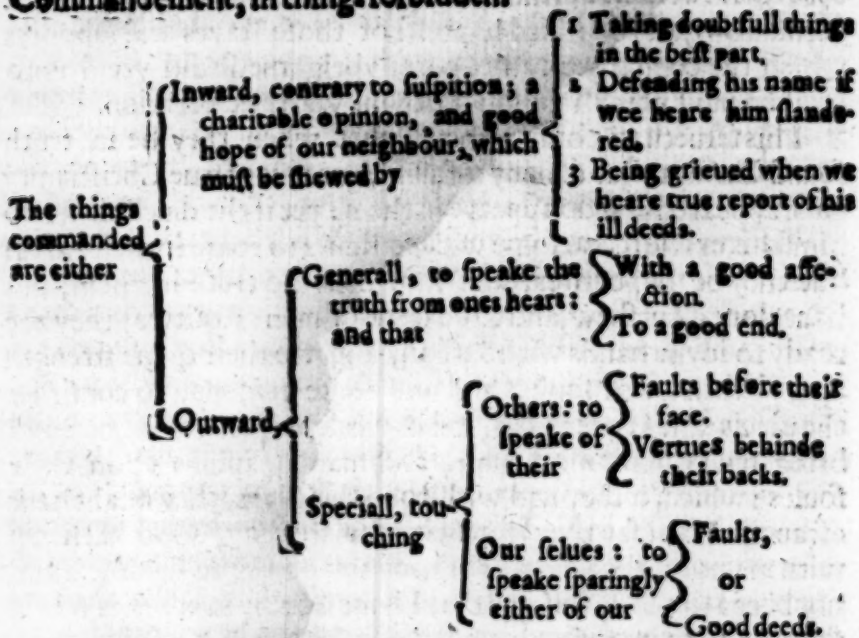 Commandement, in things forbidden.
The things
commanded
are either
Inward, contrary to ſuſpition; a
charitable opinion, and good
hope of our neighbour, which
muſt be ſhewed by
1 Taking doubtfull things
in the beſt part.
2 Defending his name if
wee heare him ſlande-
red.
3 Being grieued when we
heare true report of his
ill deeds.
Outward,
Generall, to ſpeake the
truth from ones heart:
and that
With a good affe-
ction.
To a good end.
Speciall, tou-
ching
Others: to
ſpeake of
their
Faults before their
face.
Vertues behinde
their backs.
Our ſelues: to
ſpeake ſparingly
either of our
Faults,
or
Good deeds.